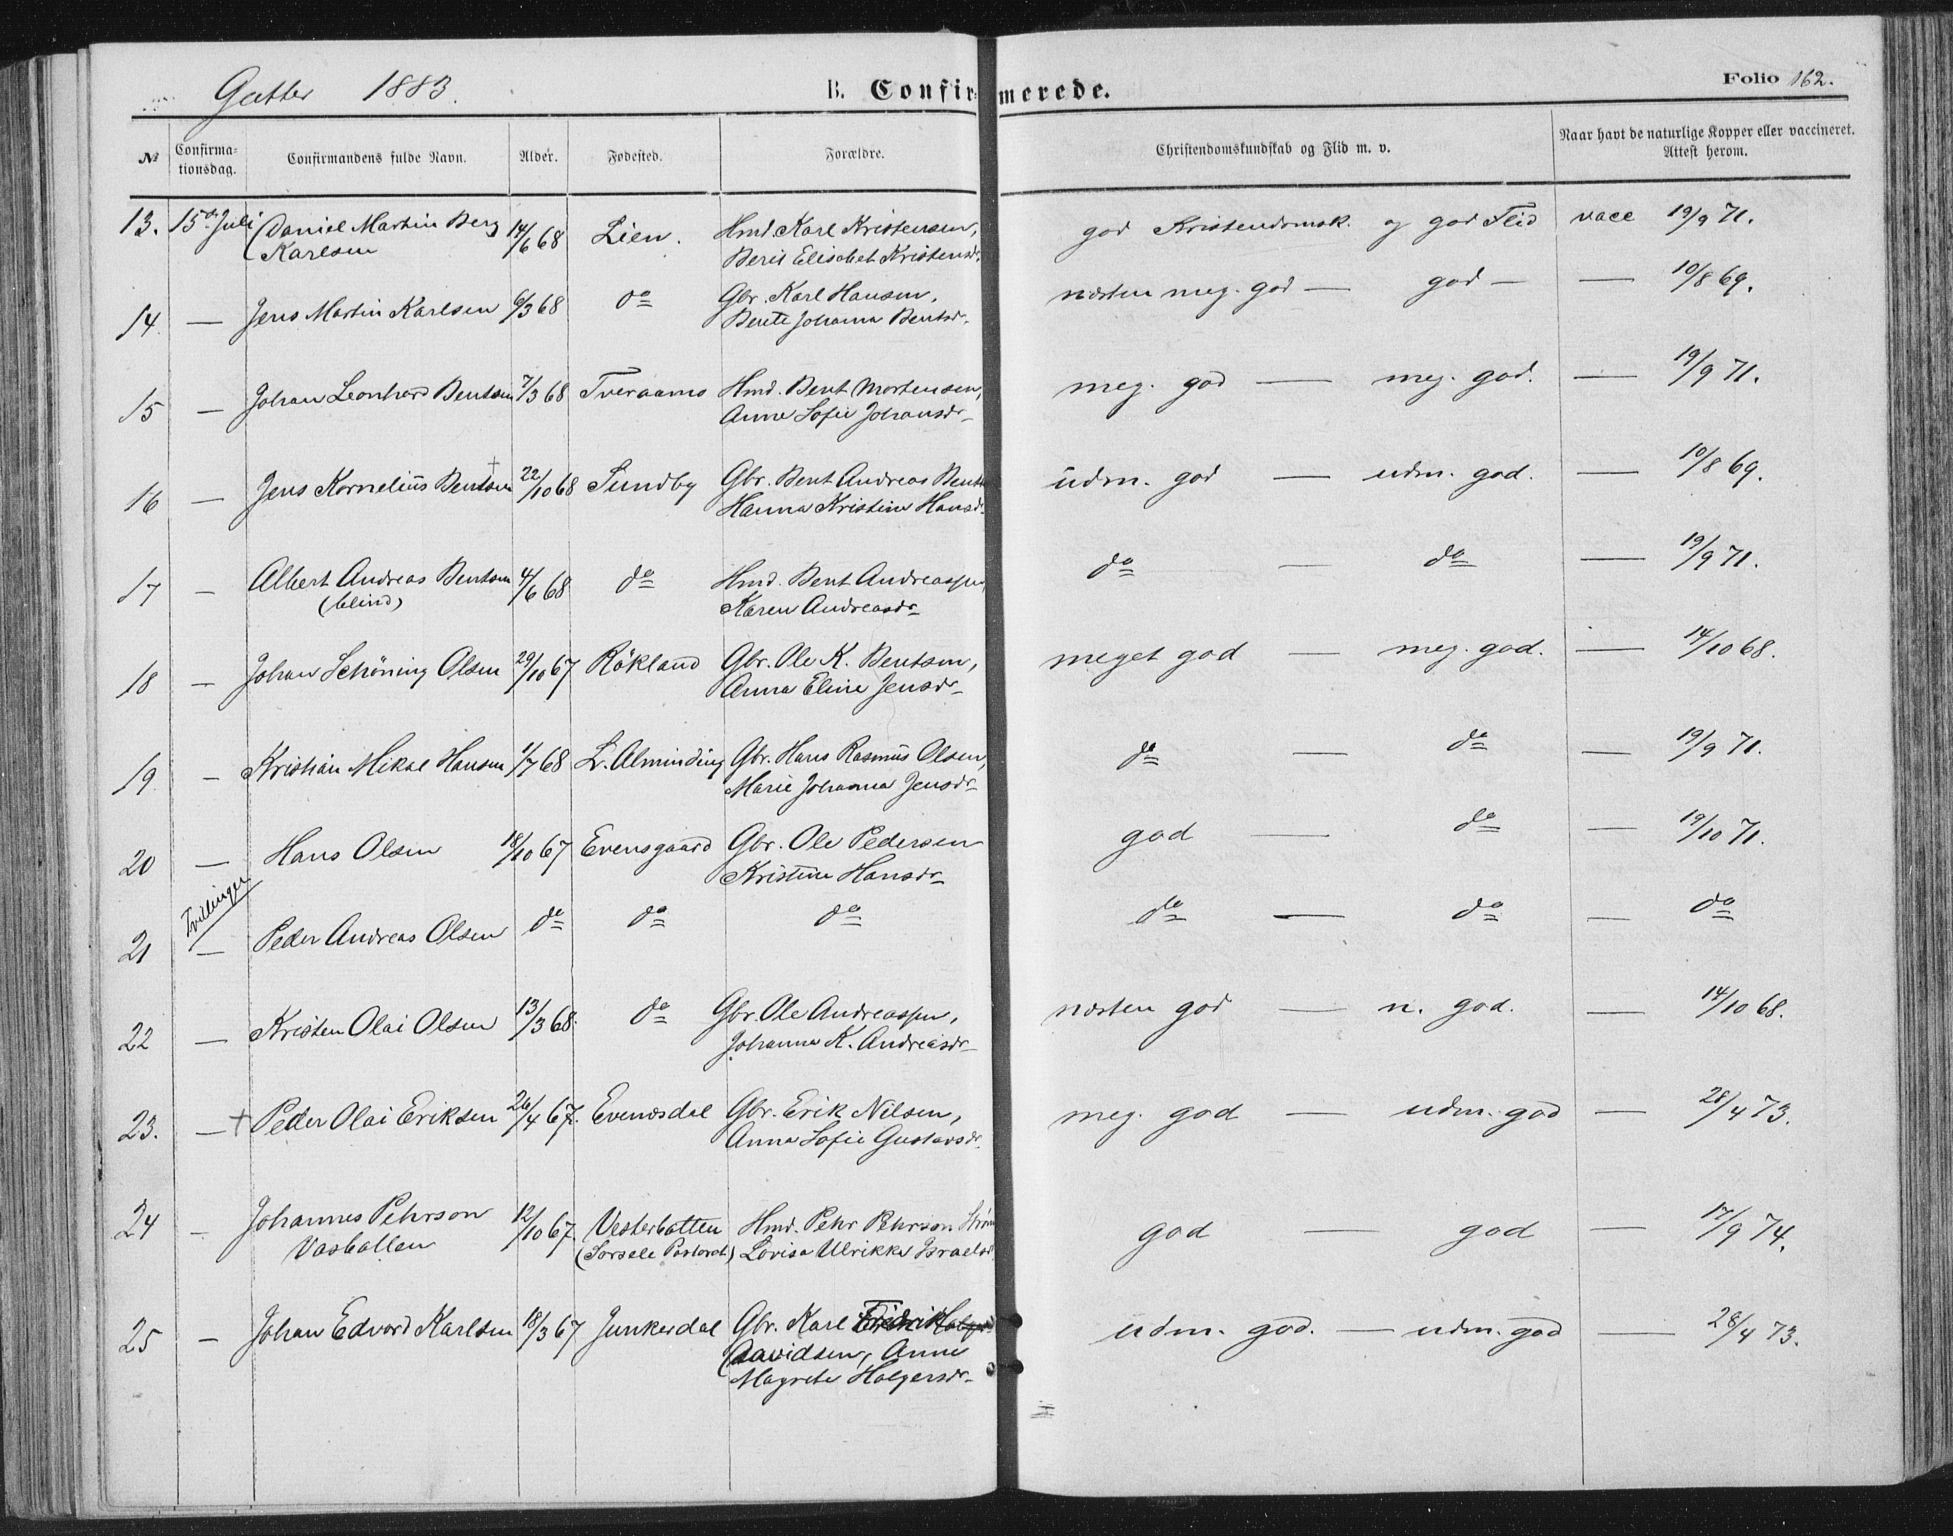 Gutter 1883. B. Confirmerede. Folio 162.
№ Confirmationsdag. Confirmandens fulde Navn. Alder. Fødested. Forældre. Christendomskundskab og Flid m. v. Naar havt de naturlige Kopper eller vaccineret. Attest herom.
13. 15de Juli Daniel Martin Berg 14/6 68 Lien. Hmd. Karl Kristensen, god Kristendomsk. og god Flid vacc 19/9 71.
Karlsen Berit Elisabet Kristensdr.
14. — Jens Martin Karlsen 6/3 68 do Gbr. Karl Hansen, næsten meg. god — god — — 10/8 69.
Berete Johanna Bentsdr.
15 — Johan Leonhard Bentsen 7/3 68 Tveraamo Hmd. Bent Mortensen, meg. god — meg. god. — 19/9 71.
Anne Sofie Johansdr.
16 — Jens Kornelius Bentsen † 22/10 68 Sundby Gbr. Bent Andreas Bents udm. god — udm. god. — 10/8 69.
Hanna Kristine Hansdr.
17 — Albert Andreas Bentsen 4/6 68 do Hmd. Bent Andreassen, do — do — 19/9 71.
(blind) Karen Andreasdr.
18 — Johan Schöning Olsen 29/10 67 Rökland Gbr. Ole K. Bentsen, meget god — meg. god. — 14/10 68.
Anna Eline Jensdr.
19. — Kristian Mikal Hansen 1/7 68 L. Alminding Gbr. Hans Rasmus Olsen, do — do — 19/9 71.
Marie Johanna Jensdr.
20 — Hans Olsen 18/10 67 Evensgaard Gbr. Ole Pedersen god — do — 19/10 71.
Kristine Hansdr.
Tvillinger
21 — Peder Andreas Olsen do do do do — do — do
22 — Kristen Olai Olsen 13/3 68. do Gbr. Ole Andreassen, næsten god — n. god. — 14/10 68.
Johanna K. Andreasdr.
23. — † Peder Olai Eriksen 26/4 67. Evenesdal Gbr. Erik Nilsen, meg. god — udm. god — 28/4 73.
Anna Sofie Gustavsdr.
24 — Johannes Pehrson 12/10 67. Vesterbotten Hmd. Pehr Pehrson Ström god — god — 17/9 74.
Vasbotten (Sorsele Pastorat) Lovisa Ulrikka Israelsd
25 — Johan Edvard Karlsen 18/3 67 Junkerdal Gbr. Karl Fredrik udm. god. — udm. god — 28/4 73.
Davidsen, Anne
Magrete Holgersdr.